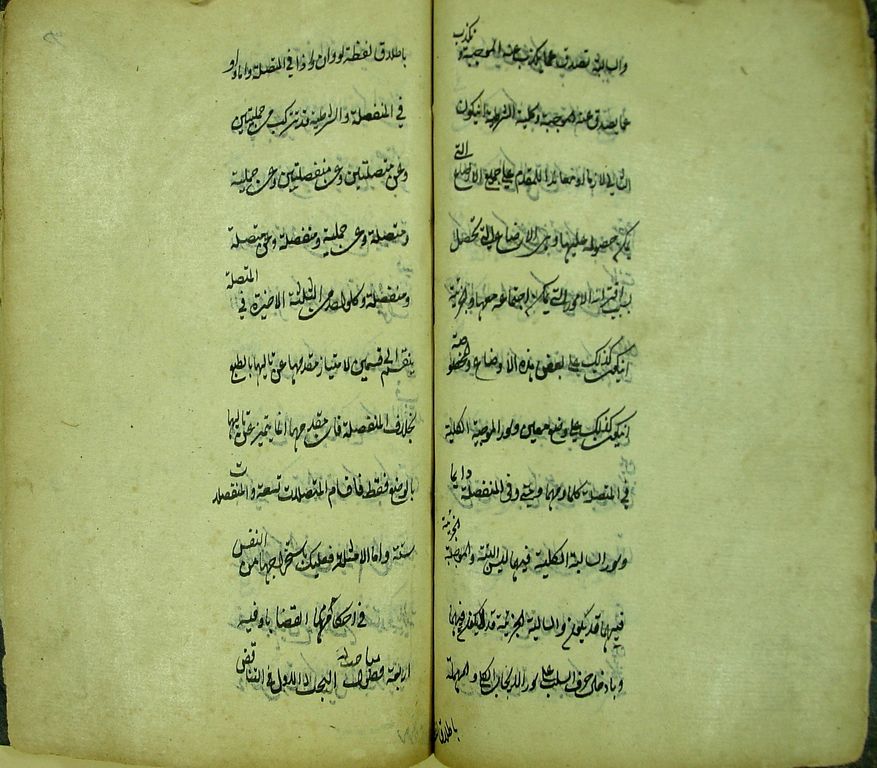 والسالبة تصدق عما يكذب عنه الموجبة وتكذب
عما يصدق عنه الموجبة وكلية الشرطية ان يكون
التالي لازما او معاندا للمقدم على جميع الاوضاع التي
يمكن حصوله عليها وهي الاوضاع التي تحصل
بسبب اقترانه الامور التي يمكن اجتماعه معها والجزئية
ان يكون كذلك على بعض هذه الاوضاع والمخصوصة
ان يكون كذلك على وضع معين وسور الموجبة الكلية
في المتصلة كلما ومهما ومتى وفي المنفصلة دايما
وسور السالبة الكلية فيهما ليس البتة والموجبة الجزئية
فيهما قد يكون والسالبة الجزئية قد لا يكون فيهما
وبادخال حرف السلب على سور الايجاب الكلي والمهملة
باطلاق
باطلاق لفظة لو وان واذا في المتصلة واما او
في المنفصلة والشرطية قد تتركب من حمليتين
وعن متصلتين وعن منفصلتين وعن حملية
ومتصلة وعن حملية ومنفصلة وعن متصلة
ومنفصلة وكل واحد من الثلثة الاخيرة في المتصلة
ينقسم الى قسمين لامتياز مقدمها عن تاليها بالطبع
بخلاف المنفصلة فان مقدمها انما يتميز عن تاليها
بالوضع فقط فاقسام المتصلات تسعة والمنفصلات
ستة واما الامثلة فعليك باستخراجها من النفس
في احكام القضايا وفيه
اربعة مباحث البحث الاول في التناقض